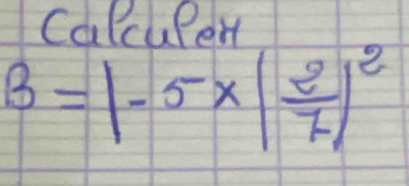 Calculer
B = |-5 × (2/7)²